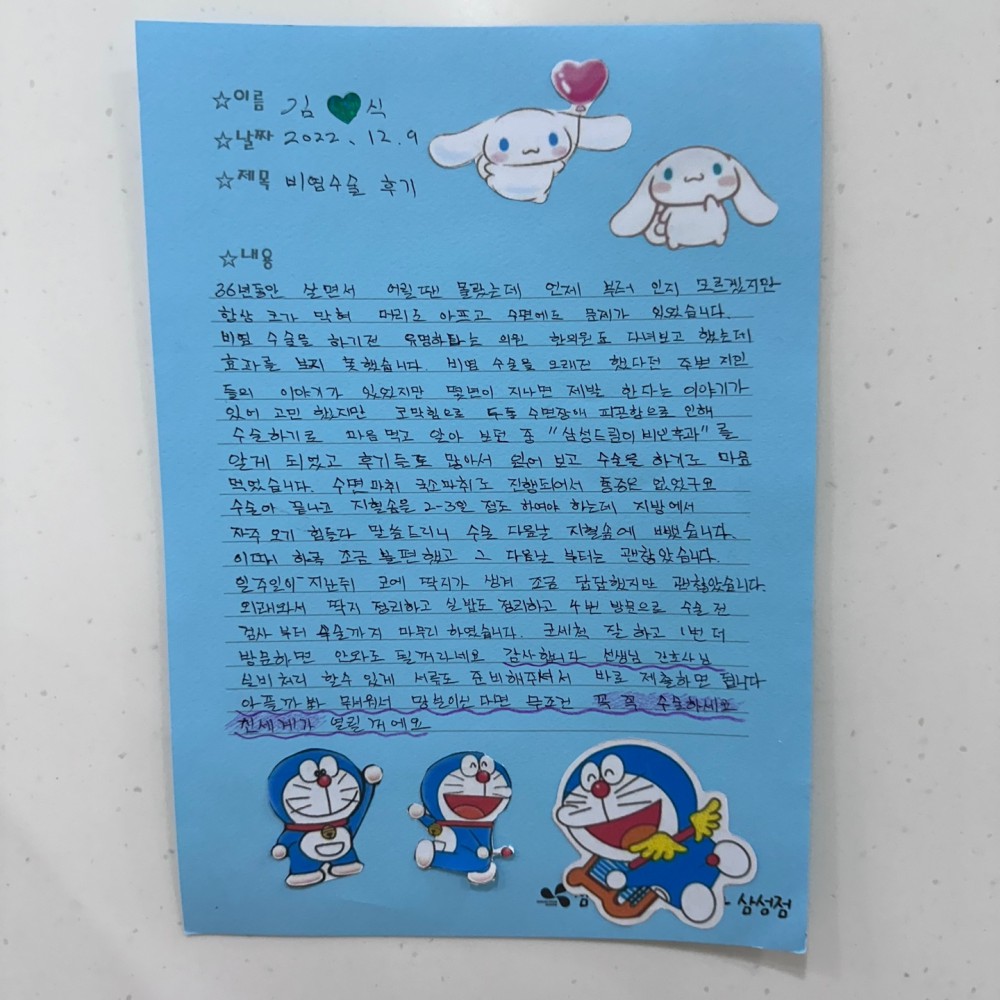 ☆이름 김 💚 식
☆날짜 2022. 12. 9
☆제목 비염수술 후기
☆내용
36년동안 살면서 어릴땐 몰랐는데 언제 부터 인지 모르겠지만
항상 코가 막혀 머리도 아프고 수면에도 문제가 있었습니다.
비염 수술을 하기전 유명하다는 의원 한의원도 다녀보고 했는데
효과를 보지 못했습니다. 비염 수술을 오래전 했다던 주변 지인
들의 이야기가 있었지만 몇년이 지나면 재발 한다는 이야기가
있어 고민 했지만 코막힘으로 두통 수면장애 피곤함으로 인해
수술하기로 마음 먹고 알아 보던 중 "삼성드림이비인후과"를
알게 되었고 후기들도 많아서 읽어 보고 수술을 하기로 마음
먹었습니다. 수면마취 국소마취도 진행되어서 통증은 없었구요
수술이 끝나고 지혈솜을 2-3일 정도 하여야 하는데 지방에서
자주 오기 힘들다 말씀드리니 수술 다음날 지혈솜에 뺐습니다.
이때서 하루 조금 불편했고 그 다음날 부터는 괜찮았습니다.
일주일이 지난뒤 코에 딱지가 생겨 조금 답답했지만 괜찮았습니다.
외래와서 딱지 정리하고 실밥도 정리하고 4번 방문으로 수술 전
검사 부터 수술까지 마무리 하였습니다. 코세척 잘 하고 1번 더
방문하면 안와도 될꺼라네요 감사합니다 선생님 간호사님
실비처리 할수 있게 서류도 준비해주셔서 바로 제출하면 됩니다
아플까봐 무서워서 망설이신다면 무조건 꼭 꼭 수술하세요
신세계가 열릴 거에요
삼성점